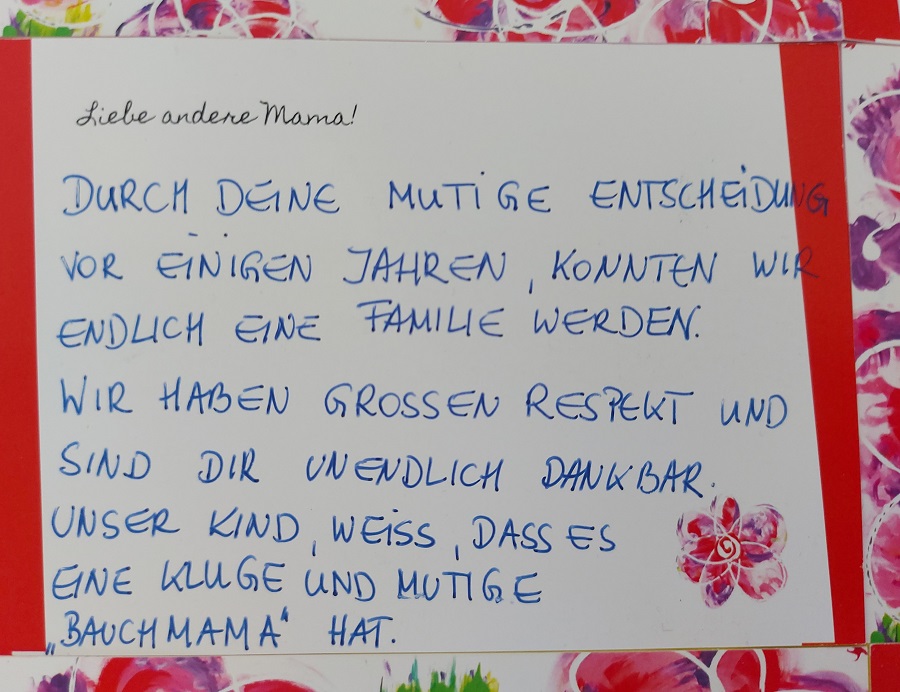 Liebe andere Mama!
DURCH DEINE MUTIGE ENTSCHEIDUNG
VOR EINIGEN JAHREN, KONNTEN WIR
ENDLICH EINE FAMILIE WERDEN.
WIR HABEN GROSSEN RESPEKT UND
SIND DIR UNENDLICH DANKBAR.
UNSER KIND, WEISS, DASS ES
EINE KLUGE UND MUTIGE
„BAUCHMAMA“ HAT.